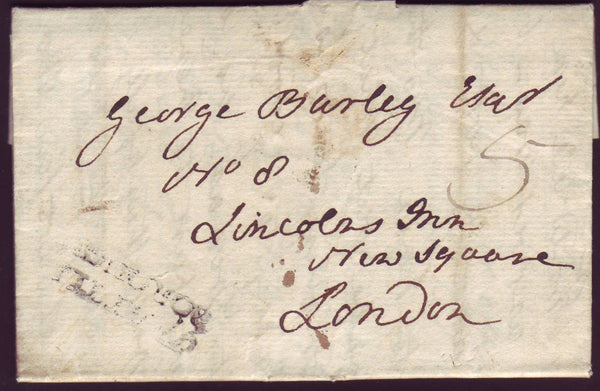 George Burley Esqr
No 8
5
Lincolns Inn
New Square
London